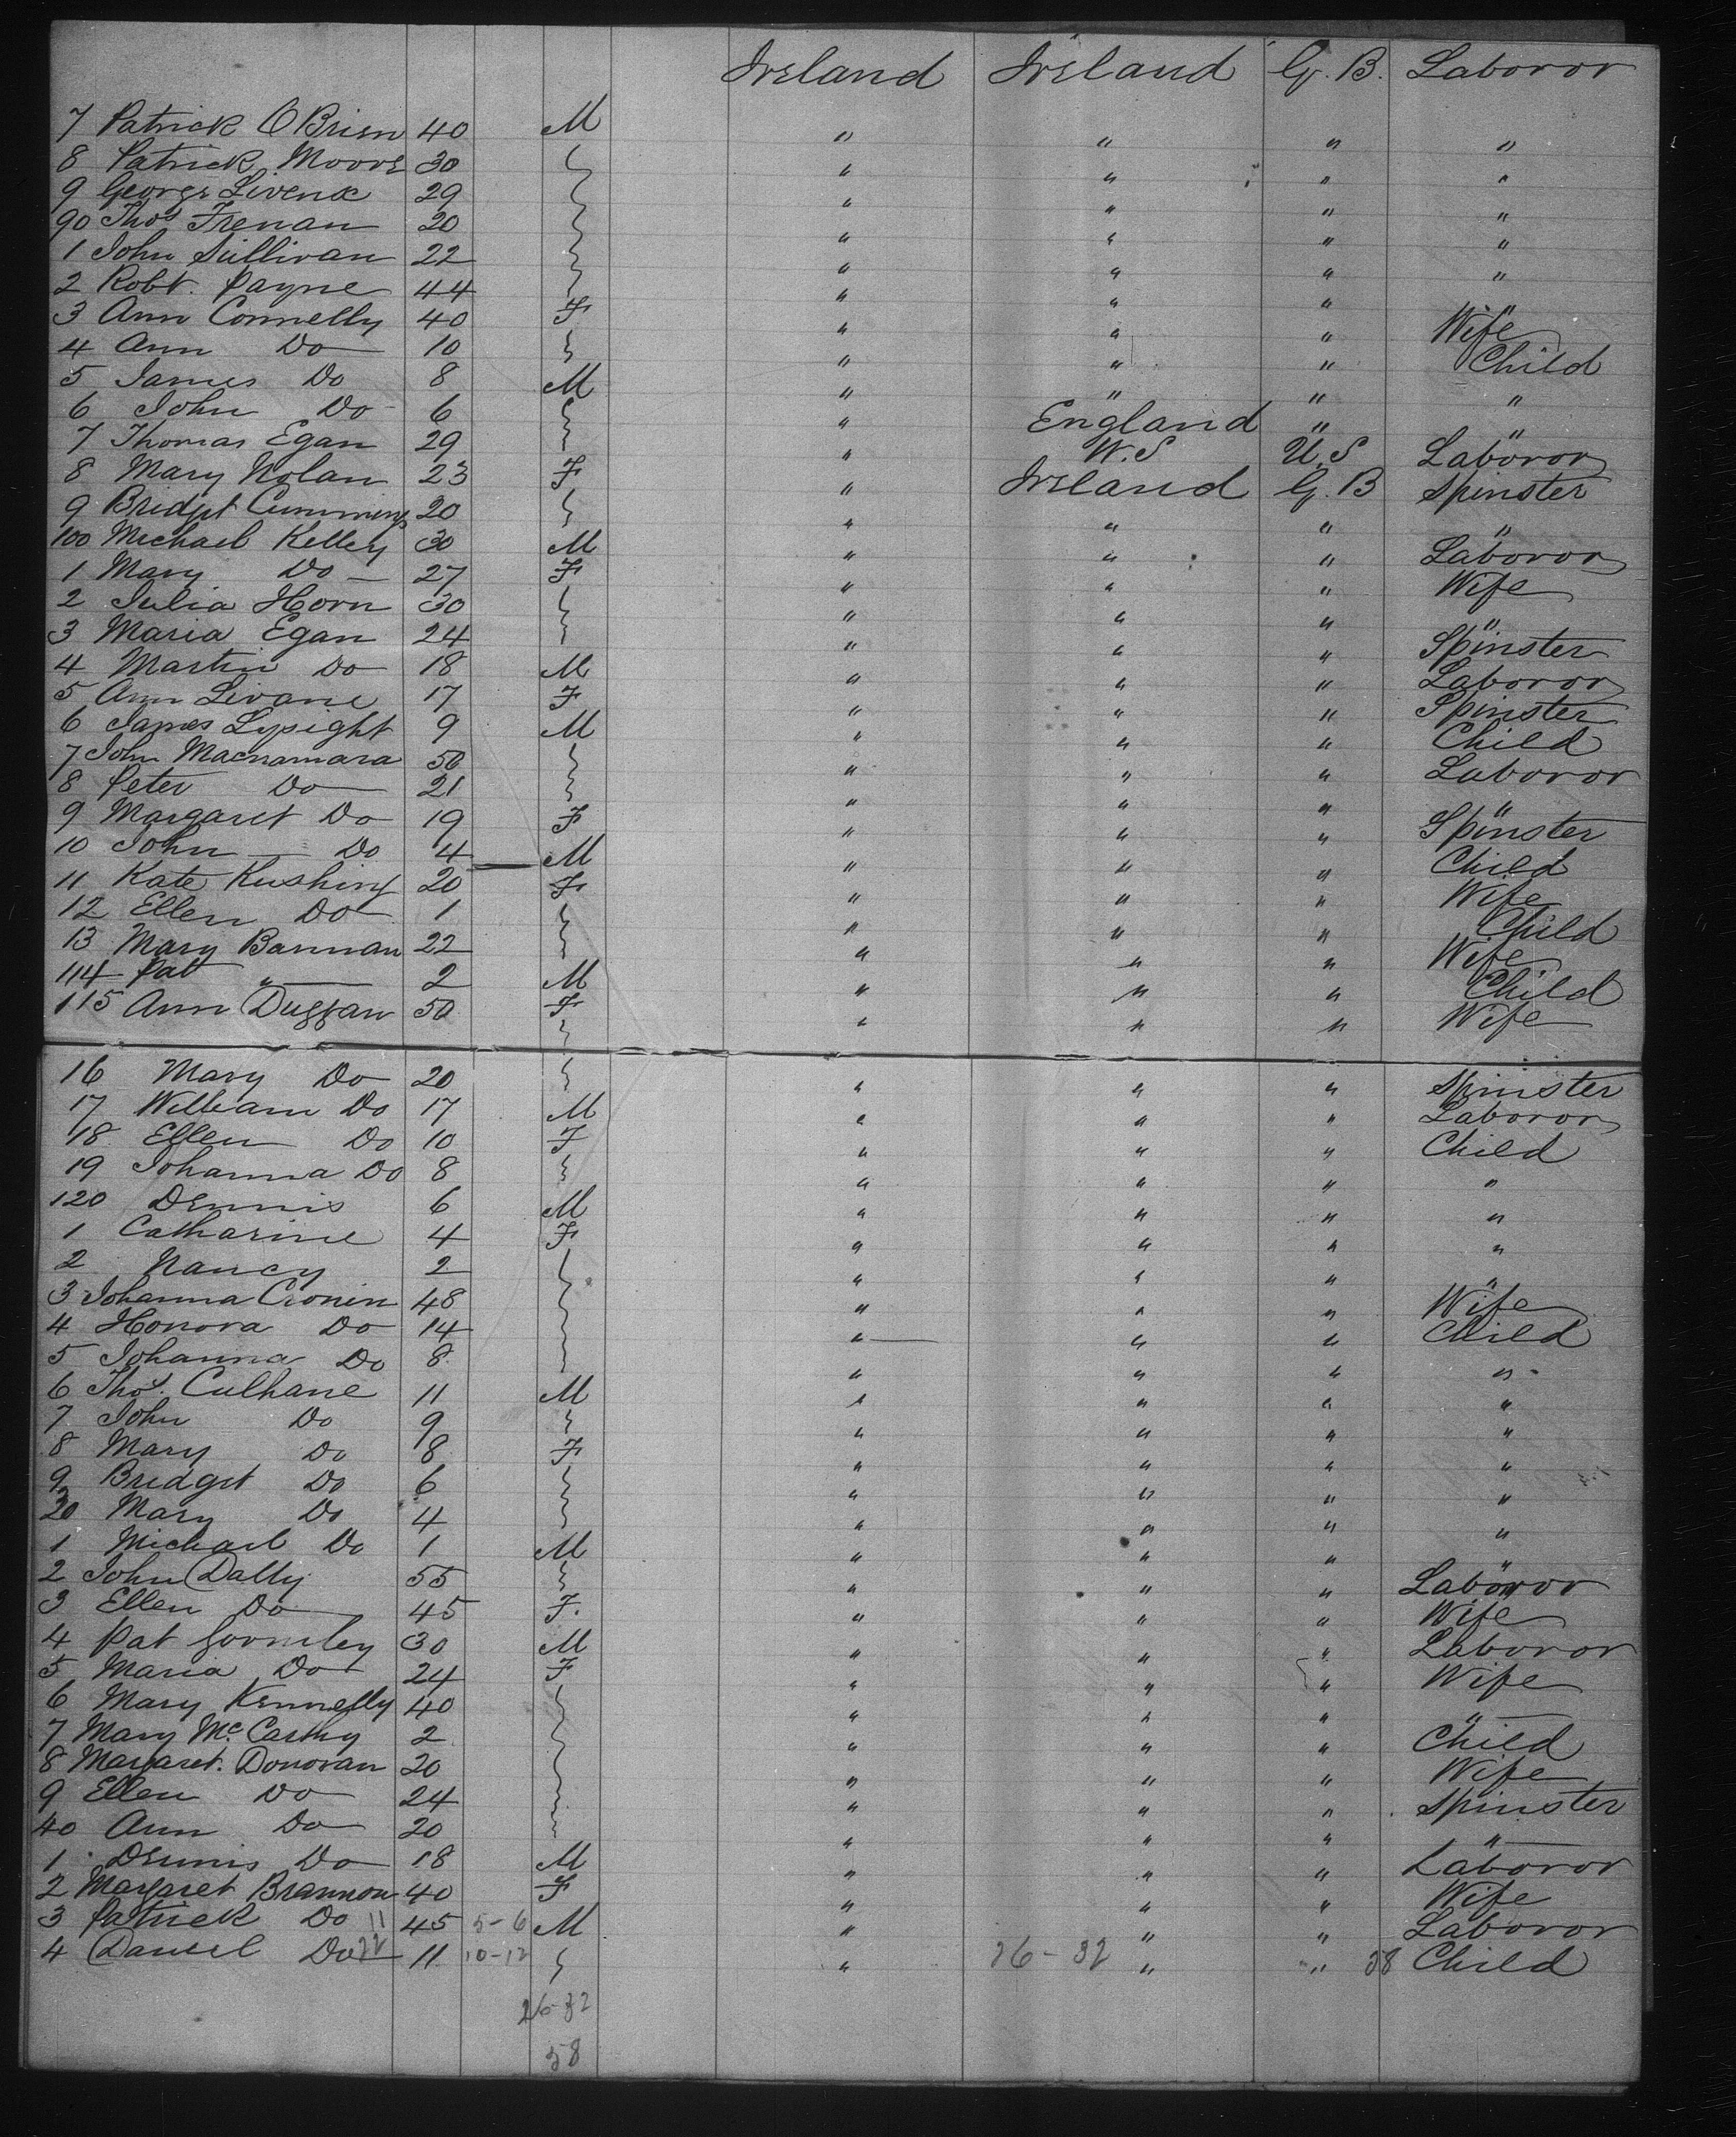 Ireland Ireland G. B. Laboror
7 Patrick O Brien 40 M " " " "
8 Patrick Moore 30 " " " "
9 George Livenk 29 " " " "
90 Thos Frenan 20 " " " "
1 John Sullivan 22 " " " "
2 Robt. Payne 44 " " " "
3 Ann Connelly 40 F " " " Wife
4 Ann Do 10 " " " Child
5 James Do 8 M " " " "
6 John Do 6 " England " "
7 Thomas Egan 29 " W.S U.S Laboror
8 Mary Nolan 23 F " Ireland G. B Spinster
9 Bridget Cummings 20 " " " "
100 Michael Kelley 30 M " " " Laboror
1 Mary Do 27 F " " " Wife
2 Julia Horn 30 " " " "
3 Maria Egan 24 " " " Spinster
4 Martin Do 18 M " " " Laboror
5 Ann Livane 17 F " " " Spinster
6 James Lysight 9 M " " " Child
7 John Macnamara 50 " " " Laboror
8 Peter Do 21 " " " "
9 Margaret Do 19 F " " " Spinster
10 John Do 4 M " " " Child
11 Kate Kushing 20 F " " " Wife
12 Ellen Do 1 " " " Child
13 Mary Bannan 22 " " " Wife
114 Pat " 2 M " " " Child
115 Ann Duggan 50 F " " " Wife
16 Mary Do 20 " " " Spinster
17 William Do 17 M " " " Laboror
18 Ellen Do 10 F " " " Child
19 Johanna Do 8 " " " "
120 Dennis 6 M " " " "
1 Catharine 4 F " " " "
2 Nancy 2 " " " "
3 Johanna Cronin 48 " " " Wife
4 Honora Do 14 " " " Child
5 Johanna Do 8 " " " "
6 Thos. Culhane 11 M " " " "
7 John Do 9 " " " "
8 Mary Do 8 F " " " "
9 Bridget Do 6 " " " "
30 Mary Do 4 " " " "
1 Michael Do 1 M " " " "
2 John Dally 55 " " " Laboror
3 Ellen Do 45 F. " " " Wife
4 Pat Gormley 30 M " " " Laboror
5 Maria Do 24 F " " " Wife
6 Mary Kennelly 40 " " " "
7 Mary Mc. Carthy 2 " " " Child
8 Margaret. Donovan 20 " " " Wife
9 Ellen Do 24 " " " Spinster
40 Ann Do 20 " " " "
1 Dennis Do 18 M " " " Laboror
2 Margaret Brannon 40 F " " " Wife
3 Patrick Do 11 45 5-6 M " " " Laboror
4 Daniel Do 22 11 10-12 " 26-32 " " 58 Child
26-32
58